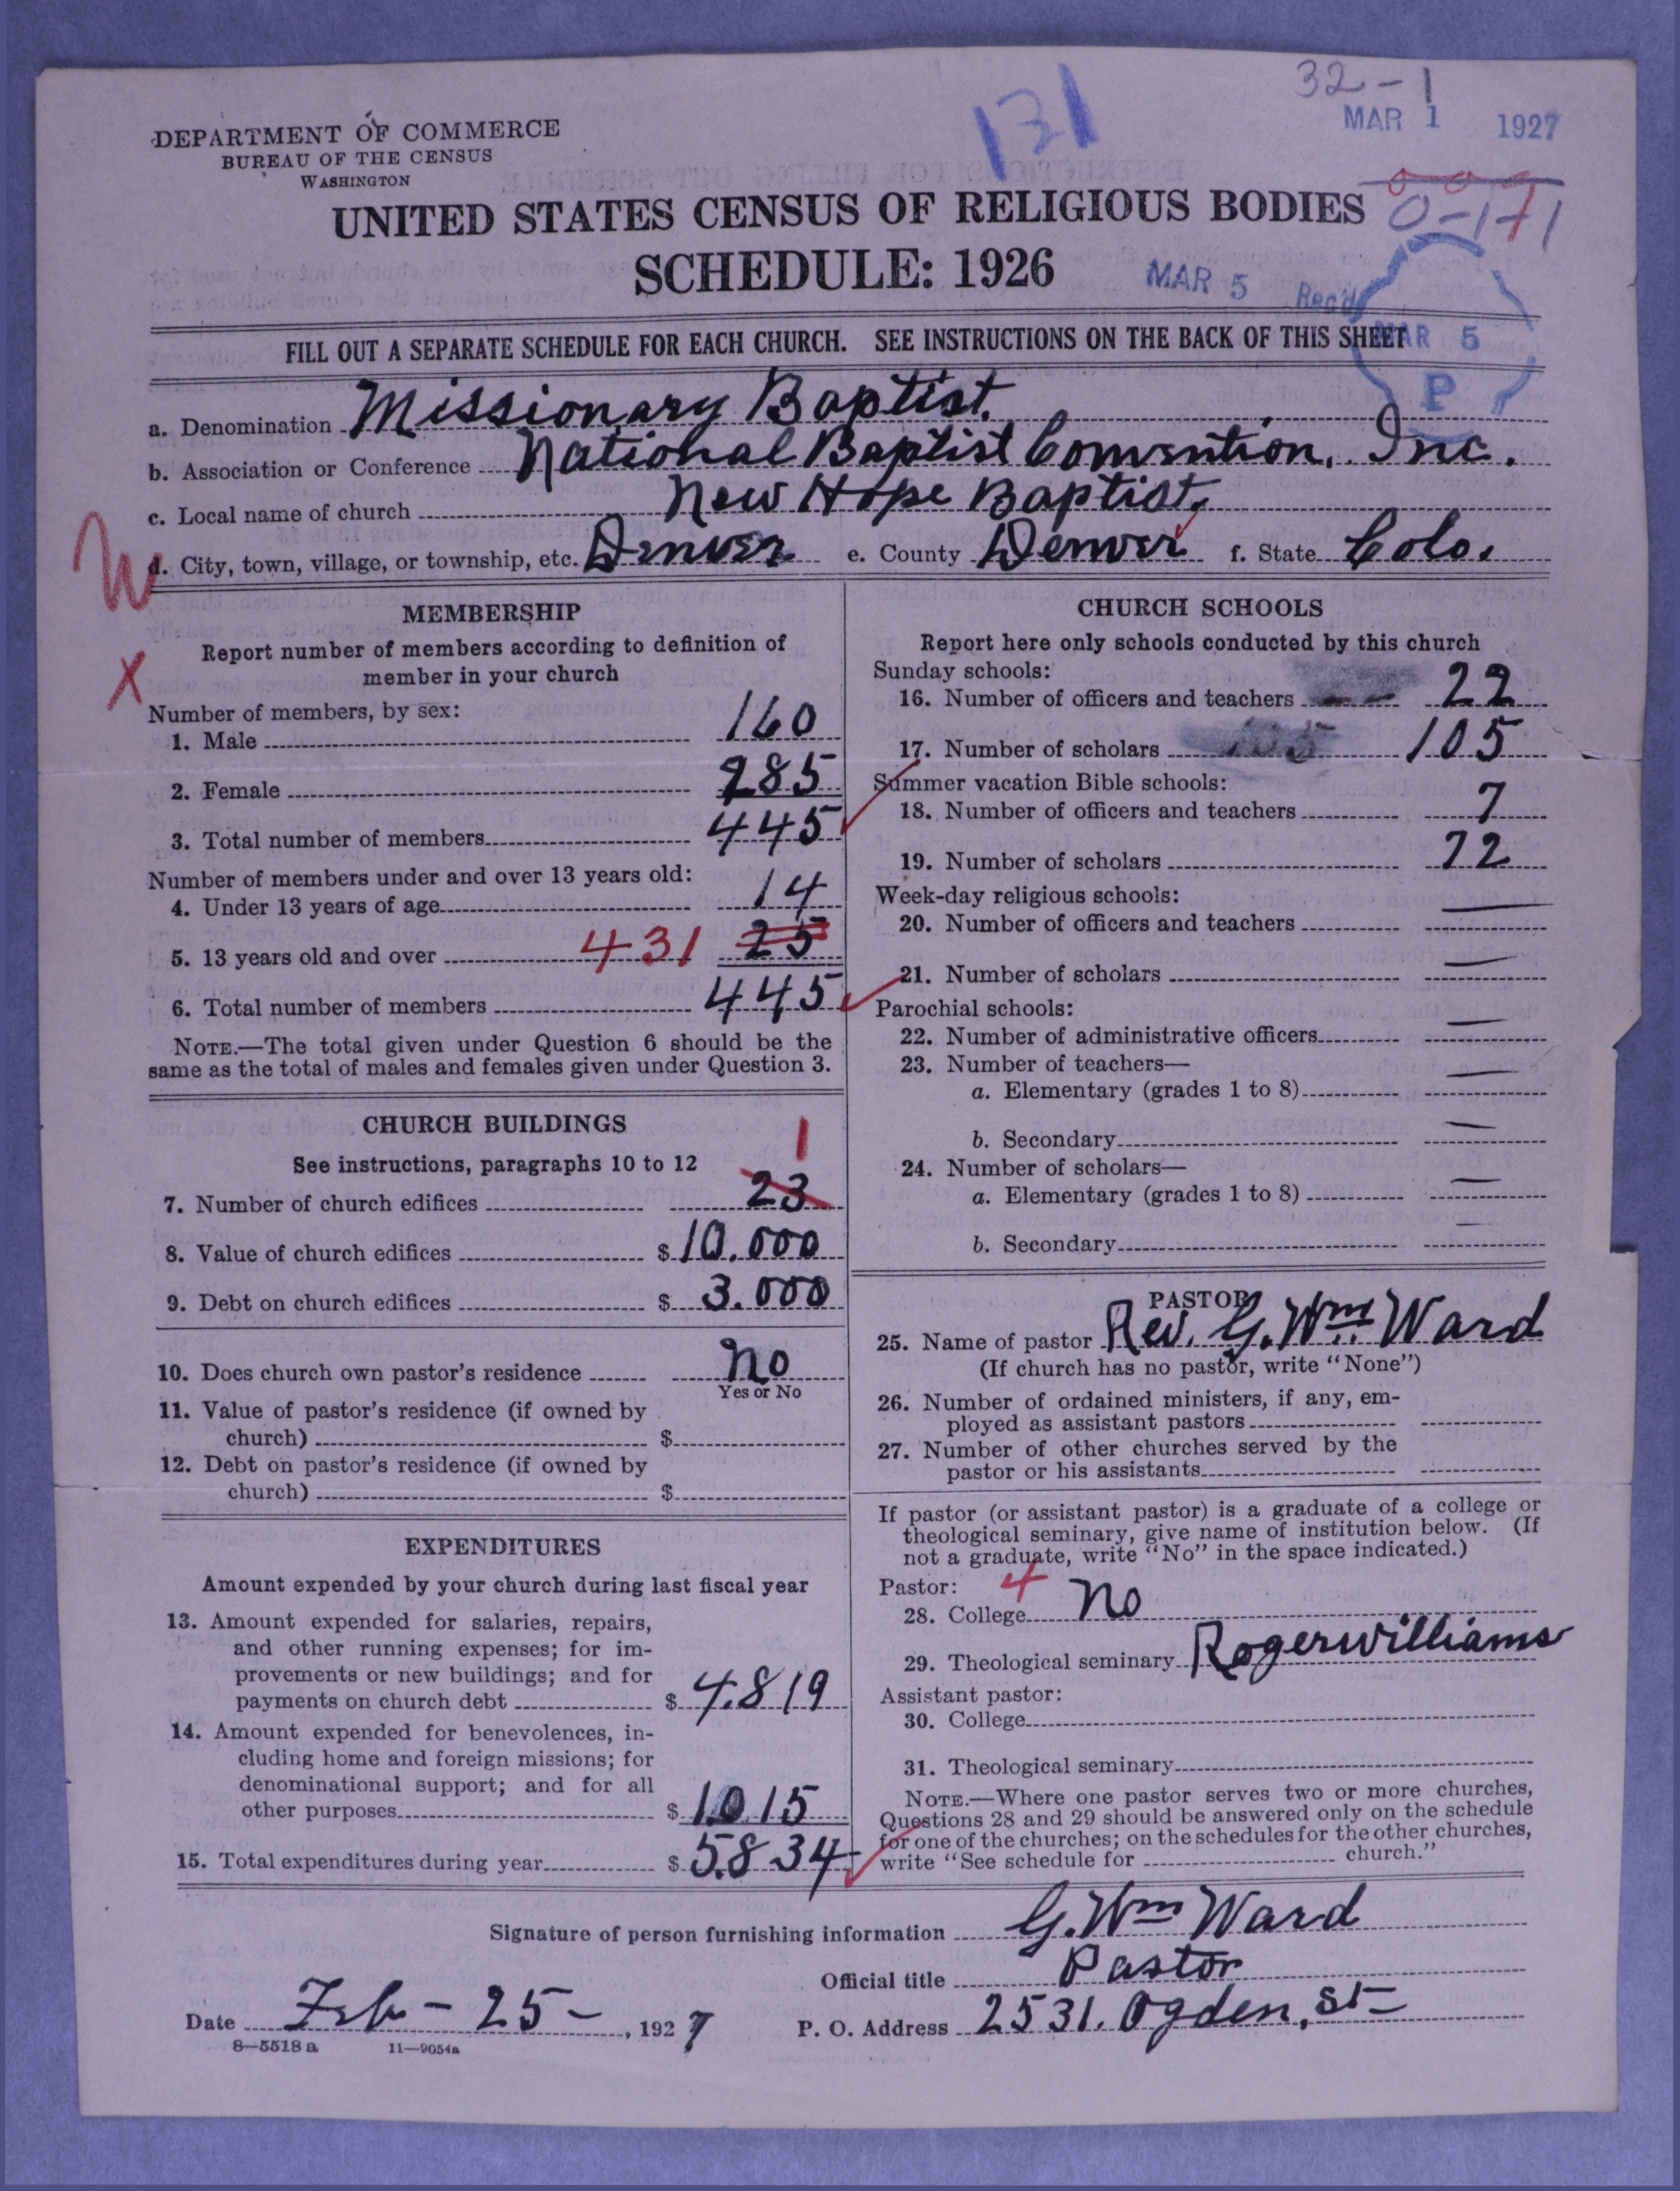 32-1
131
MAR 1 1927
DEPARTMENT OF COMMERCE
BUREAU OF THE CENSUS
WASHINGTON
UNITED STATES CENSUS OF RELIGIOUS BODIES
0-171
SCHEDULE: 1926
MAR 5 Rec'd
MAR 5
P
FILL OUT A SEPARATE SCHEDULE FOR EACH CHURCH. SEE INSTRUCTIONS ON THE BACK OF THIS SHEET
a. Denomination Missionary Baptist.
b. Association or Conference National Baptist Convention, Inc.
c. Local name of church New Hope Baptist,
W
d. City, town, village, or township, etc. Denver e. County Denver f. State Colo.
MEMBERSHIP
Report number of members according to definition of
member in your church
X
Number of members, by sex:
1. Male 160
2. Female 285
3. Total number of members 445
Number of members under and over 13 years old:
4. Under 13 years of age 14
5. 13 years old and over 431 25
6. Total number of members 445
NOTE.—The total given under Question 6 should be the
same as the total of males and females given under Question 3.
CHURCH BUILDINGS
See instructions, paragraphs 10 to 12
1
7. Number of church edifices 23
8. Value of church edifices $ 10.000
9. Debt on church edifices $ 3.000
10. Does church own pastor's residence no
Yes or No
11. Value of pastor's residence (if owned by
church) $
12. Debt on pastor's residence (if owned by
church) $
EXPENDITURES
Amount expended by your church during last fiscal year
13. Amount expended for salaries, repairs,
and other running expenses; for im-
provements or new buildings; and for
payments on church debt $ 4.819
14. Amount expended for benevolences, in-
cluding home and foreign missions; for
denominational support; and for all
other purposes $ 1.015
15. Total expenditures during year $ 5.834
CHURCH SCHOOLS
Report here only schools conducted by this church
Sunday schools:
16. Number of officers and teachers 22
17. Number of scholars 105 105
Summer vacation Bible schools:
18. Number of officers and teachers 7
19. Number of scholars 72
Week-day religious schools:
20. Number of officers and teachers —
21. Number of scholars —
Parochial schools:
22. Number of administrative officers —
23. Number of teachers—
a. Elementary (grades 1 to 8) —
b. Secondary —
24. Number of scholars—
a. Elementary (grades 1 to 8) —
b. Secondary —
PASTOR
25. Name of pastor Rev. G. Wm Ward
(If church has no pastor, write "None")
26. Number of ordained ministers, if any, em-
ployed as assistant pastors
27. Number of other churches served by the
pastor or his assistants
If pastor (or assistant pastor) is a graduate of a college or
theological seminary, give name of institution below. (If
not a graduate, write "No" in the space indicated.)
Pastor: 4
28. College no
29. Theological seminary Rogerwilliams
Assistant pastor:
30. College
31. Theological seminary
NOTE.—Where one pastor serves two or more churches,
Questions 28 and 29 should be answered only on the schedule
for one of the churches; on the schedules for the other churches,
write "See schedule for church."
Signature of person furnishing information G. Wm Ward
Official title Pastor
Date Feb - 25 -, 1927
P. O. Address 2531. Ogden, St
8—5518 a 11—9054a